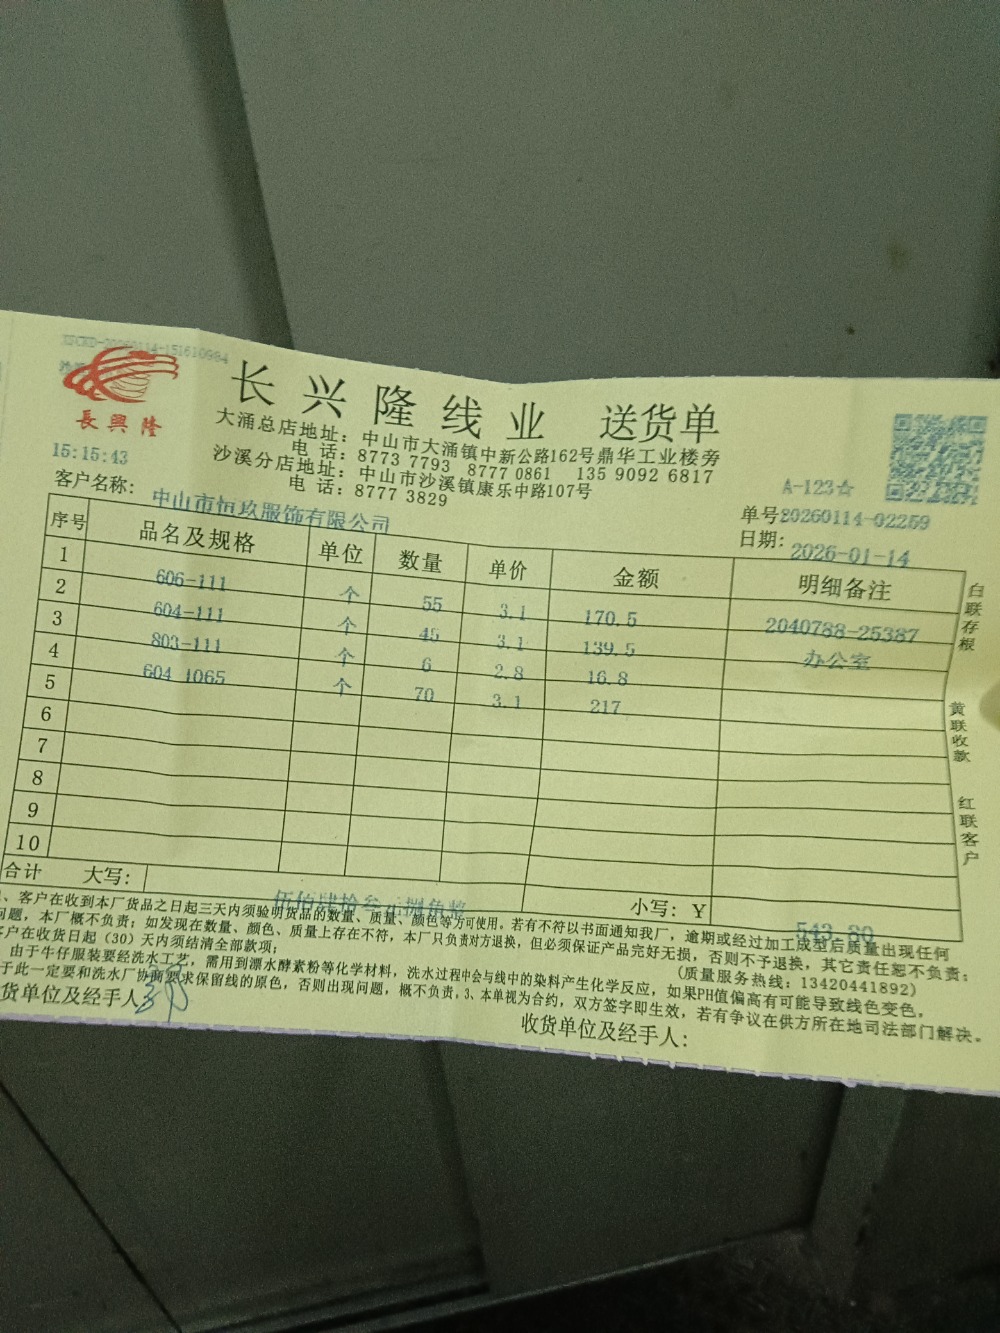 長興隆
长兴隆线业 送货单
大涌总店地址：中山市大涌镇中新公路162号鼎华工业楼旁
电 话：8773 7793 8777 0861 135 9092 6817
沙溪分店地址：中山市沙溪镇康乐中路107号
电 话：8777 3829
15:15:43
A-123☆
客户名称：中山市恒玖服饰有限公司
单号20260114-02259
日期：2026-01-14
序号 品名及规格 单位 数量 单价 金额 明细备注
1 606-111 个 55 3.1 170.5 2040788-25387
2 604-111 个 45 3.1 139.5 办公室
3 803-111 个 6 2.8 16.8
4 604 1065 个 70 3.1 217
5
6
7
8
9
10
合计 大写：伍佰肆拾叁元捌角整 小写：Y 543.80
白联存根 黄联收款 红联客户
、客户在收到本厂货品之日起三天内须验明货品的数量、质量、颜色等方可使用。若有不符以书面通知我厂，逾期或经过加工成型后质量出现任何
问题，本厂概不负责；如发现在数量、颜色、质量上存在不符，本厂只负责对方退换，但必须保证产品完好无损，否则不予退换，其它责任恕不负责；
客户在收货日起（30）天内须结清全部款项； (质量服务热线：13420441892)
由于牛仔服装要经洗水工艺，需用到漂水酵素粉等化学材料，洗水过程中会与线中的染料产生化学反应，如果PH值偏高有可能导致线色变色，
于此一定要和洗水厂协商要求保留线的原色，否则出现问题，概不负责。3、本单视为合约，双方签字即生效，若有争议在供方所在地司法部门解决。
货单位及经手人：
收货单位及经手人：